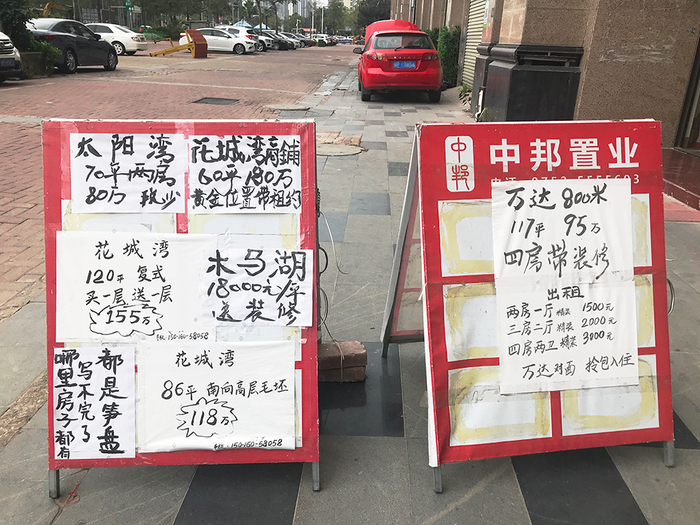 太阳湾
70平两房
80万
花城湾商鋪
60平180万
黄金位置带租约
花城湾
120平复式
买一层送一层
155万
150-160-58058
木马湖
18000元/平
送装修
都是笋盘
写不完了
哪里房子都有
花城湾
86平 南向高层毛坯
118万
150-160-58058
中邦
中邦置业
万达800米
117平 95万
四房带装修
出租
两房一厅 精装 1500元
三房二厅 精装 2000元
四房两卫 精装 3000元
万达对面 拎包入住